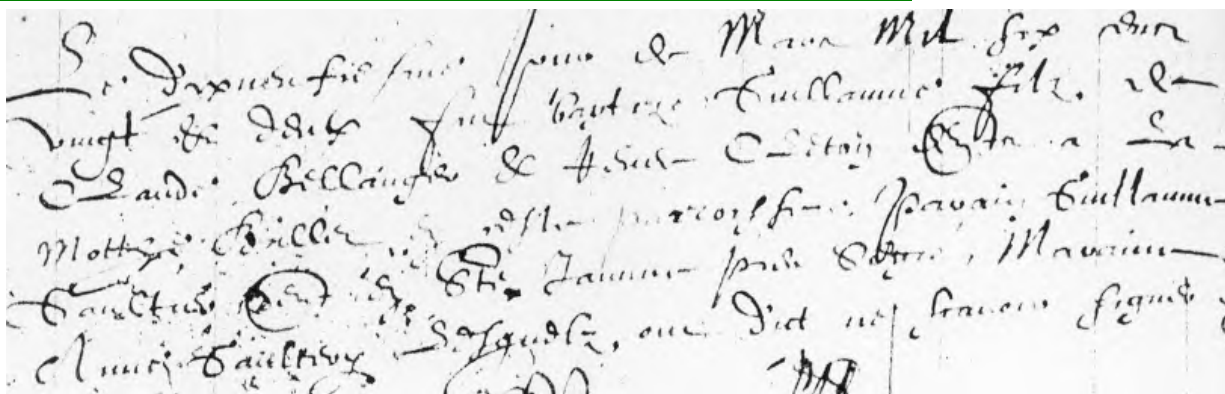 Le dixneufiesme jour de Mars Mil six cents
vingt et deulx fut baptize Guillaume filz de
Claude Bellanger et Renee Cureton dem.t a La
Motte en ceste parroisse Parain Guillaume
Gaultier dem.t en Ste Jamme pres Segre, Maraine
Anne Gaultier Lesquelz, ont dict ne scavoir signer